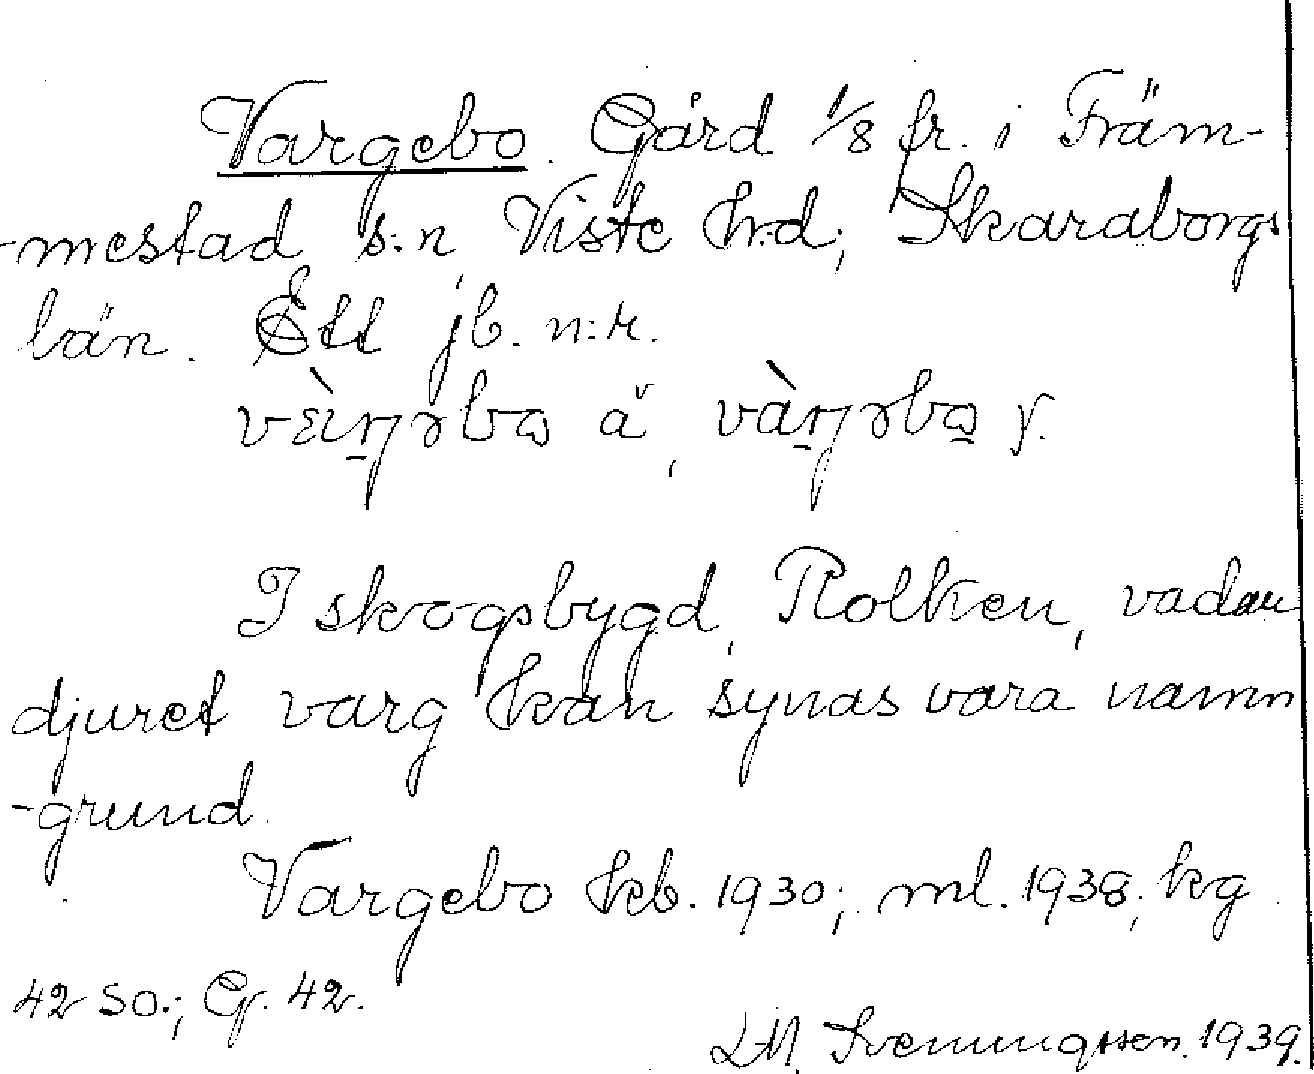 Vargebo. Gård 1/8 fr. i Främ-
-mestad s:n, Viste h:d; Skaraborgs
län. Ett jb. n:r.
å, y.
I skogsbygd, Rolken, vadan
djuret varg kan synas vara namn
-grund.
Vargebo kb. 1930; ml. 1938; kg
42 SO.; G. 42.
LM. Svenungsson. 1939.